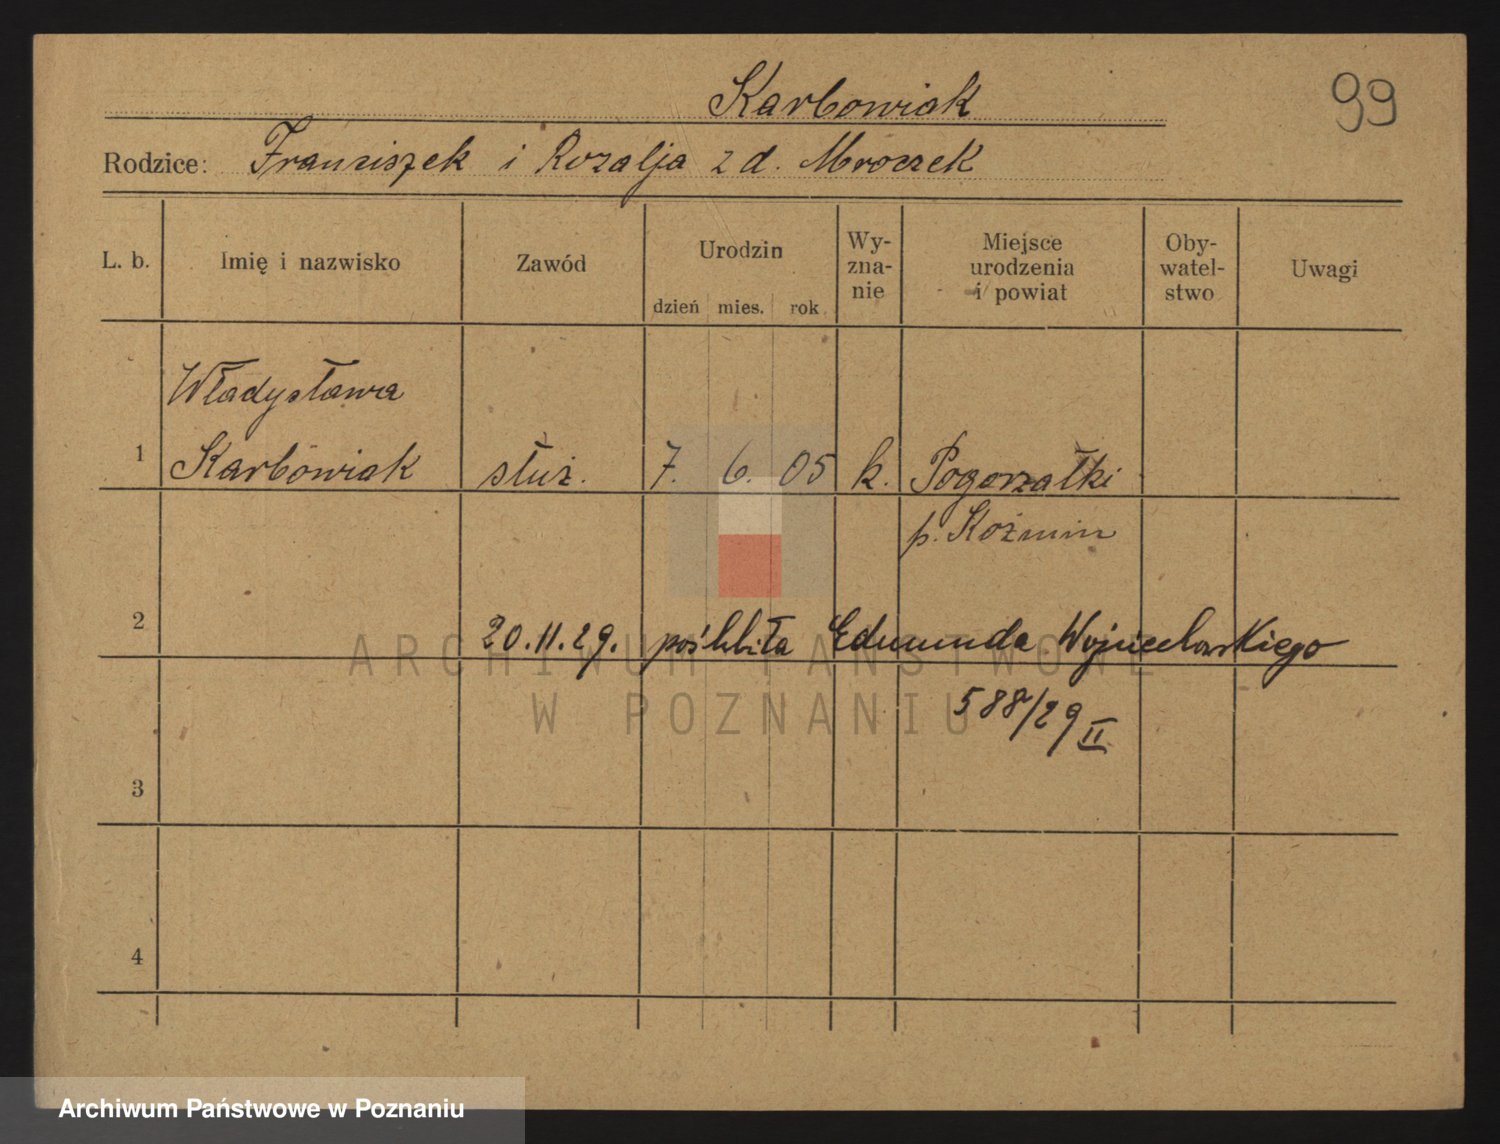 Karbowiak
99
Rodzice: Franciszek i Rozalja z d. Mroczek
L. b.
Imię i nazwisko
Zawód
Urodzin
dzień mies. rok
Wy-
zna-
nie
Miejsce
urodzenia
i powiat
Oby-
watel-
stwo
Uwagi
Władysława
1 Karbowiak służ. 7. 6. 05 k. Pogorzałki
p. Koźmin
2 20.11.29. poślubiła Edmunda Wojciechowskiego
588/29 II
3
4
ARCHIWUM PAŃSTWOWE
W POZNANIU
Archiwum Państwowe w Poznaniu